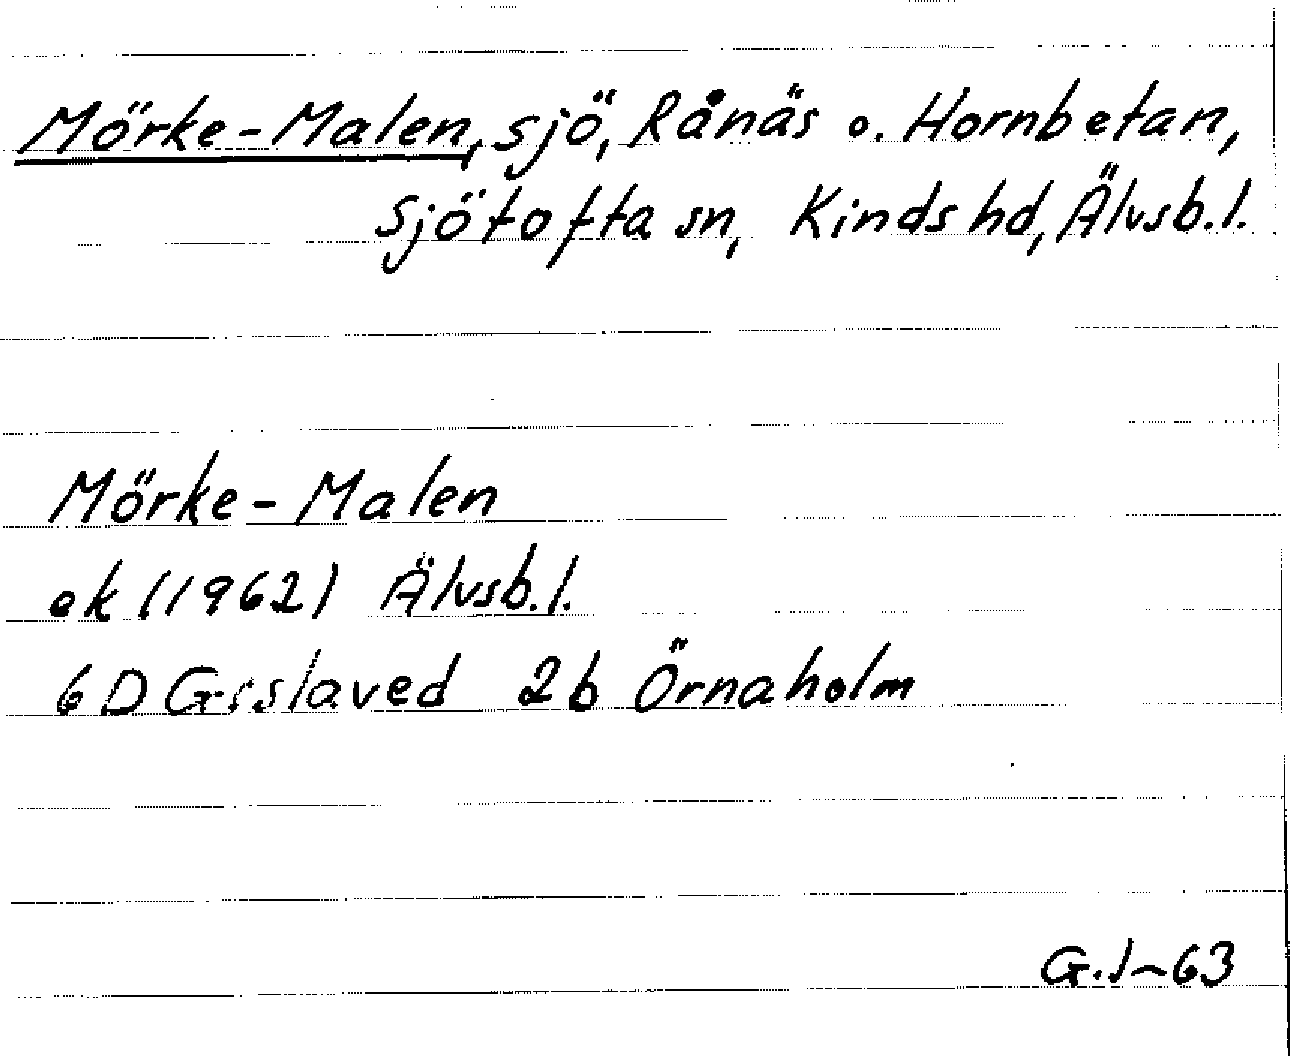 Mörke-Malen, sjö, Rånäs o. Hornbetan,
Sjötofta sn, Kinds hd, Älvsb.l.
Mörke-Malen
ek (1962) Älvsb.l.
6 D Gislaved 2b Örnaholm
G.J-63